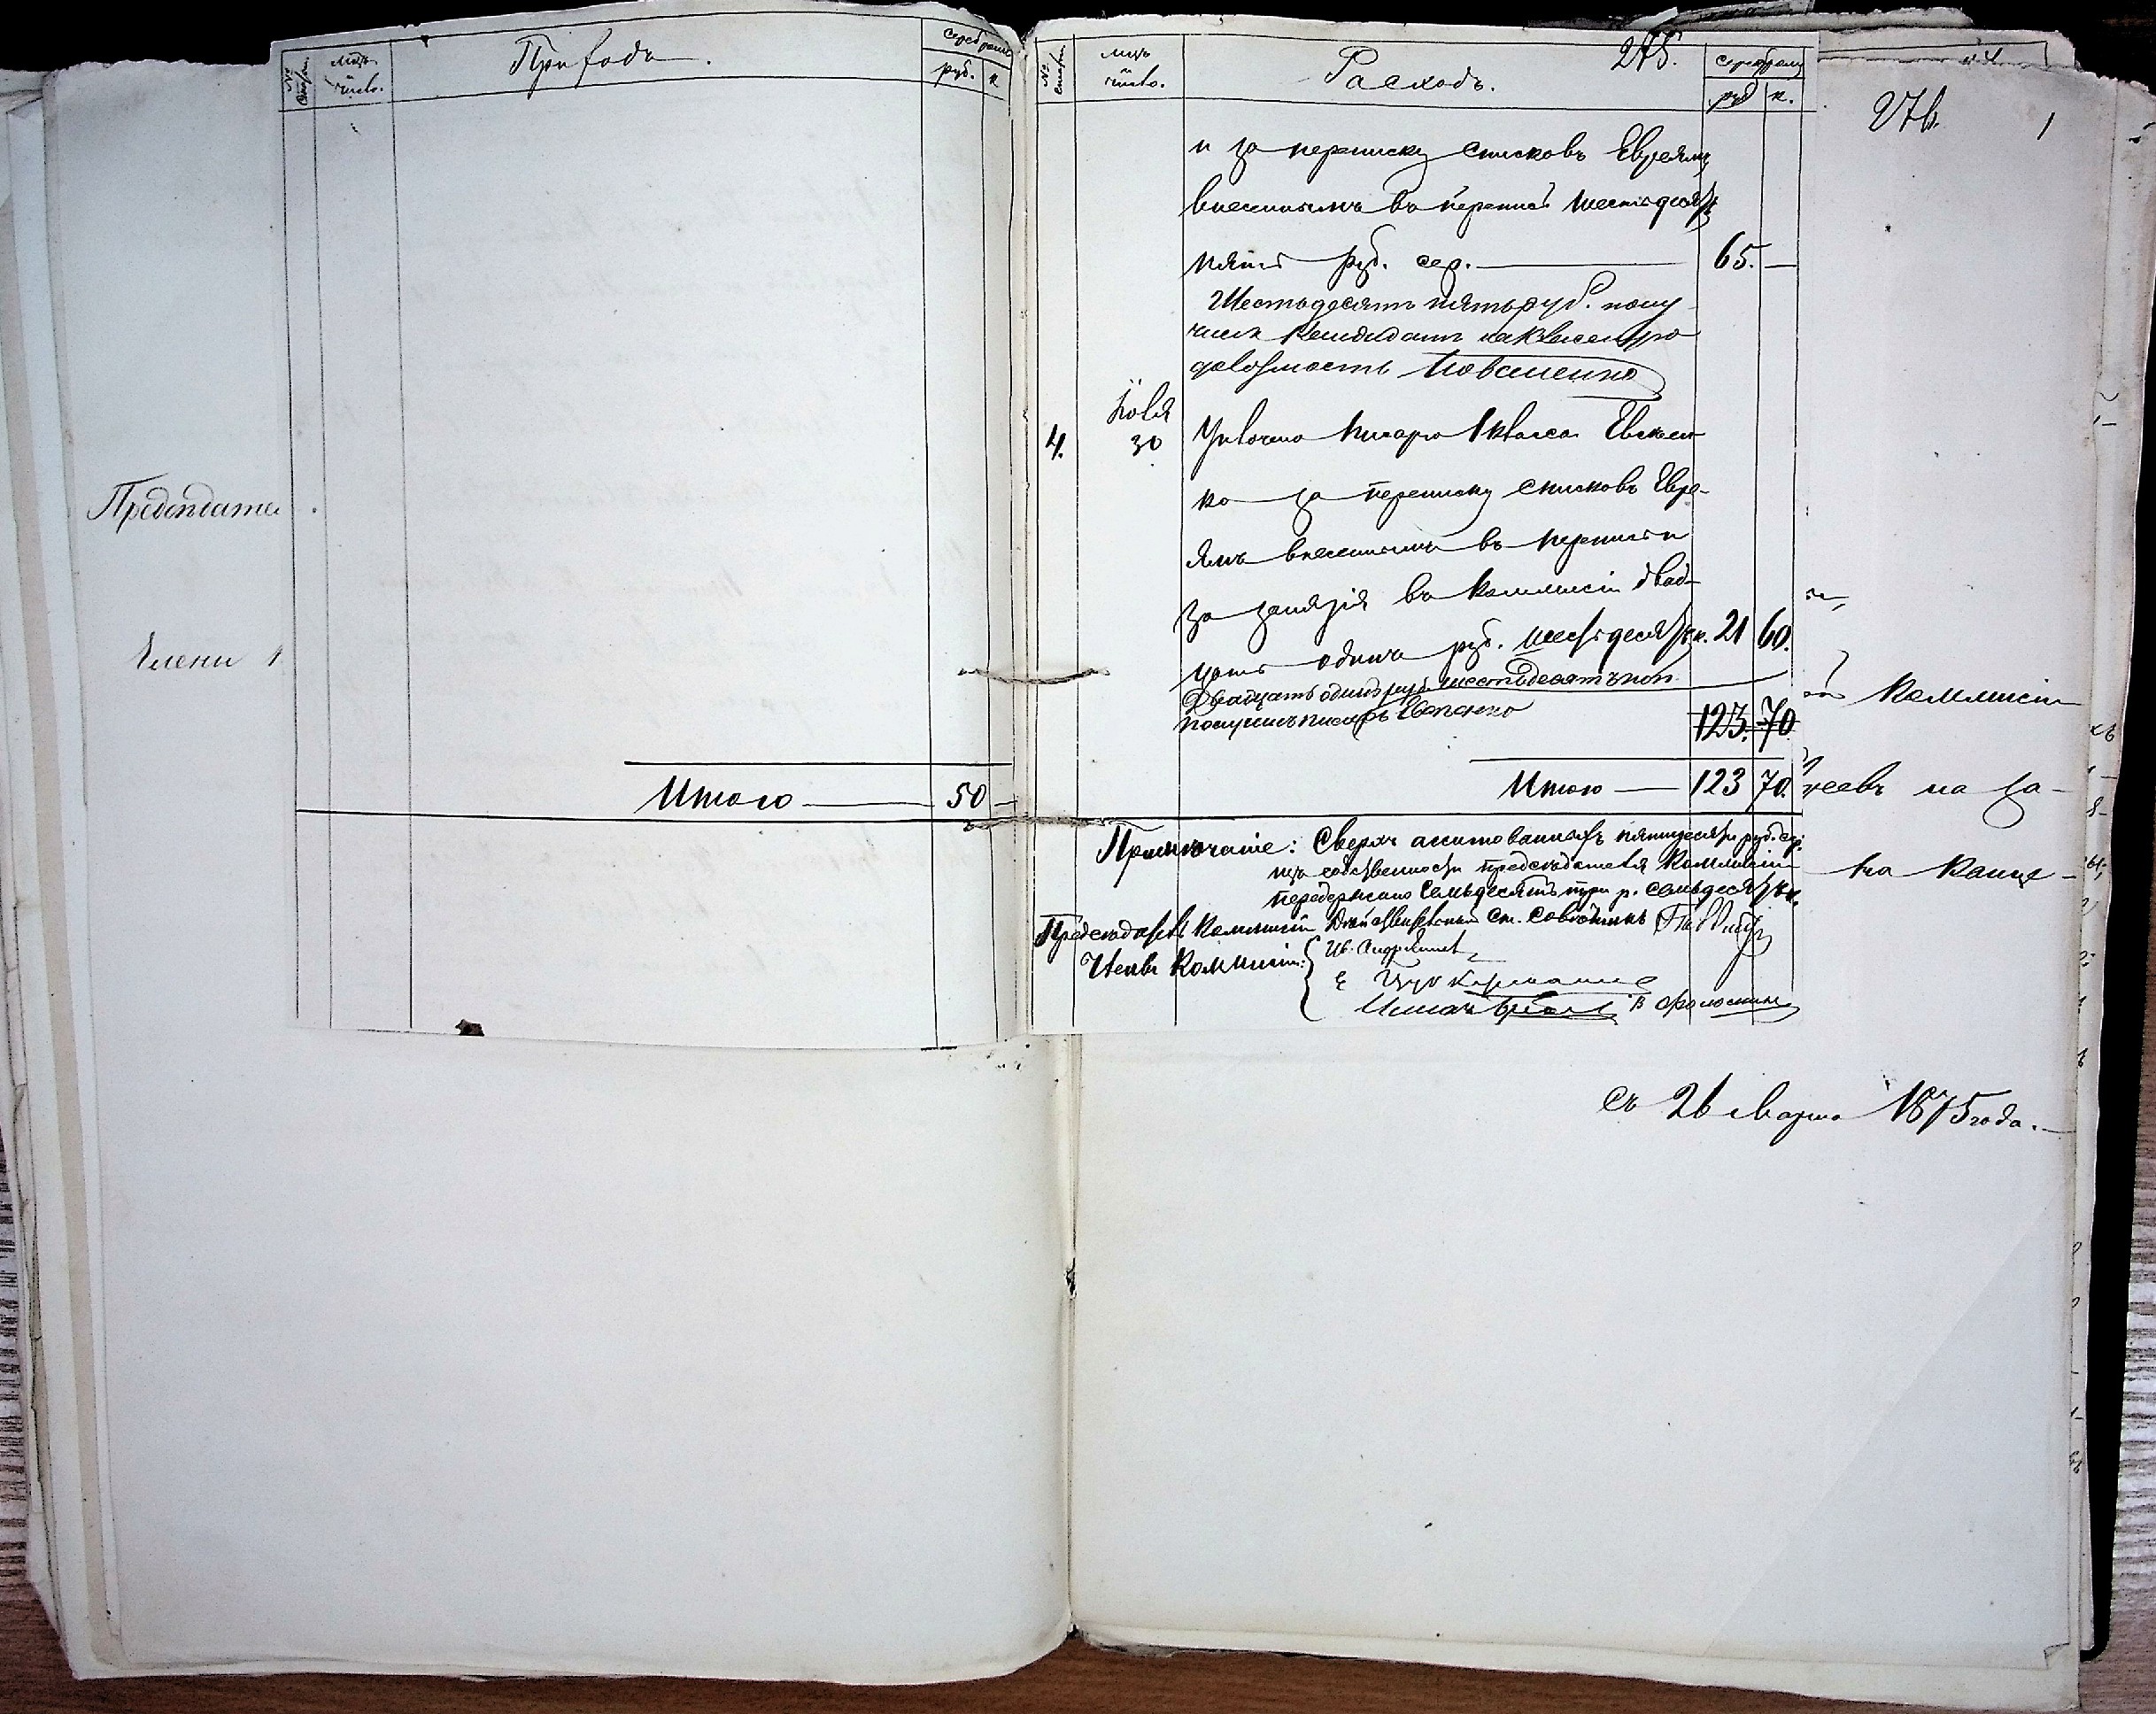 № статьи.
мцъ и число.
Приходъ.
серебромъ
руб. к
Предсѣдате
Члены
Итого 50 —
№ статьи.
мцъ и число.
Расходъ.
275.
серебромъ
руб к.
и за переписку списковъ Евреямъ
внесеннымъ въ перепись шестьдесятъ
пять руб. сер. — 65. —
Шестьдесятъ пять руб. полу-
чилъ Кандидатъ на Классную
должность
Іюля
4. 30 Уплочено писарю 1 класса Евсѣен-
ко за переписку списковъ Евре-
ямъ внесеннымъ въ перепись и
за занятія въ Коммисіи двад-
цать одинъ руб. шестьдесятъ к. 21 60.
Двадцать одинъ руб. шестьдесятъ коп.
получилъ писарь
123. 70
Итого — 123 70.
Примѣчаніе: Сверхъ ассигнованныхъ пятидесяти руб. сер.
изъ собственности предсѣдателя Коммисіи
передержано семьдесятъ три р. семьдесятъ к.
Предсѣдатель Коммисіи Дѣйствительный Ст. Совѣтникъ
Члены Коммисіи:
276.
Коммисіи
на за-
на канце-
съ 26 Марта 1875 года.—